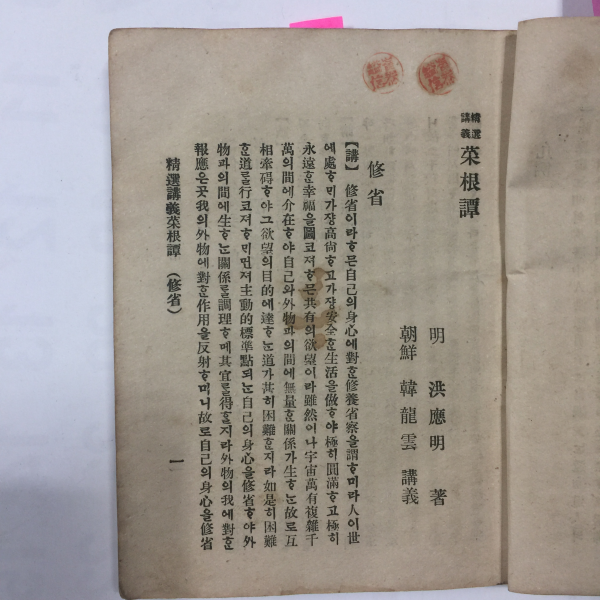 精選講義 菜根譚
明 洪應明 著
朝鮮 韓龍雲 講義
修省
【講】 修省이라ᄒᆞᆷ은自己의身心에對ᄒᆞᆫ修養省察을謂ᄒᆞᆷ이라人이世
에處ᄒᆞᆷ이가쟝高尙ᄒᆞ고가쟝安全ᄒᆞᆫ生活을做ᄒᆞ야極히圓滿ᄒᆞ고極히
永遠ᄒᆞᆫ幸福을圖코져ᄒᆞᆷ은共有의欲望이라雖然이나宇宙萬有複雜千
萬의間에介在ᄒᆞ야自己와外物과의間에無量ᄒᆞᆫ關係가生ᄒᆞᄂᆞᆫ故로互
相牽碍ᄒᆞ야그欲望의目的에達ᄒᆞᄂᆞᆫ道가甚히困難ᄒᆞᆫ지라如是히困難
ᄒᆞᆫ道를行코져ᄒᆞᆷ이먼져主動的標準點되ᄂᆞᆫ自己의身心을修省ᄒᆞ야外
物과의間에生ᄒᆞᄂᆞᆫ關係를調理ᄒᆞᆷ에其宜를得ᄒᆞᆯ지라外物의我에對ᄒᆞᆫ
報應은곳我의外物에對ᄒᆞᆫ作用을反射ᄒᆞᆷ이니故로自己의身心을修省
精選講義菜根譚 (修省) 一